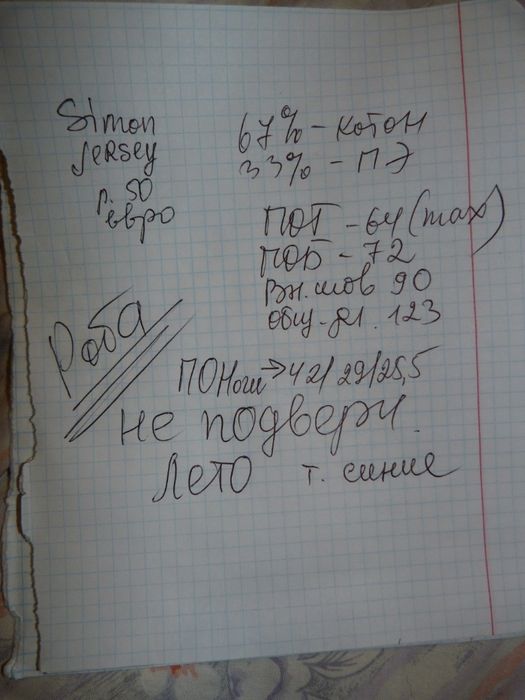 Simon
Jersey
р. 50
евро
67% - котон
33% - ПЭ
ПОТ - 64 (max)
ПОБ - 72
вн. шов 90
общ. дл. 123
Роба
ПО Ноги → 42/29/25,5
не подверн.
Лето т. синие